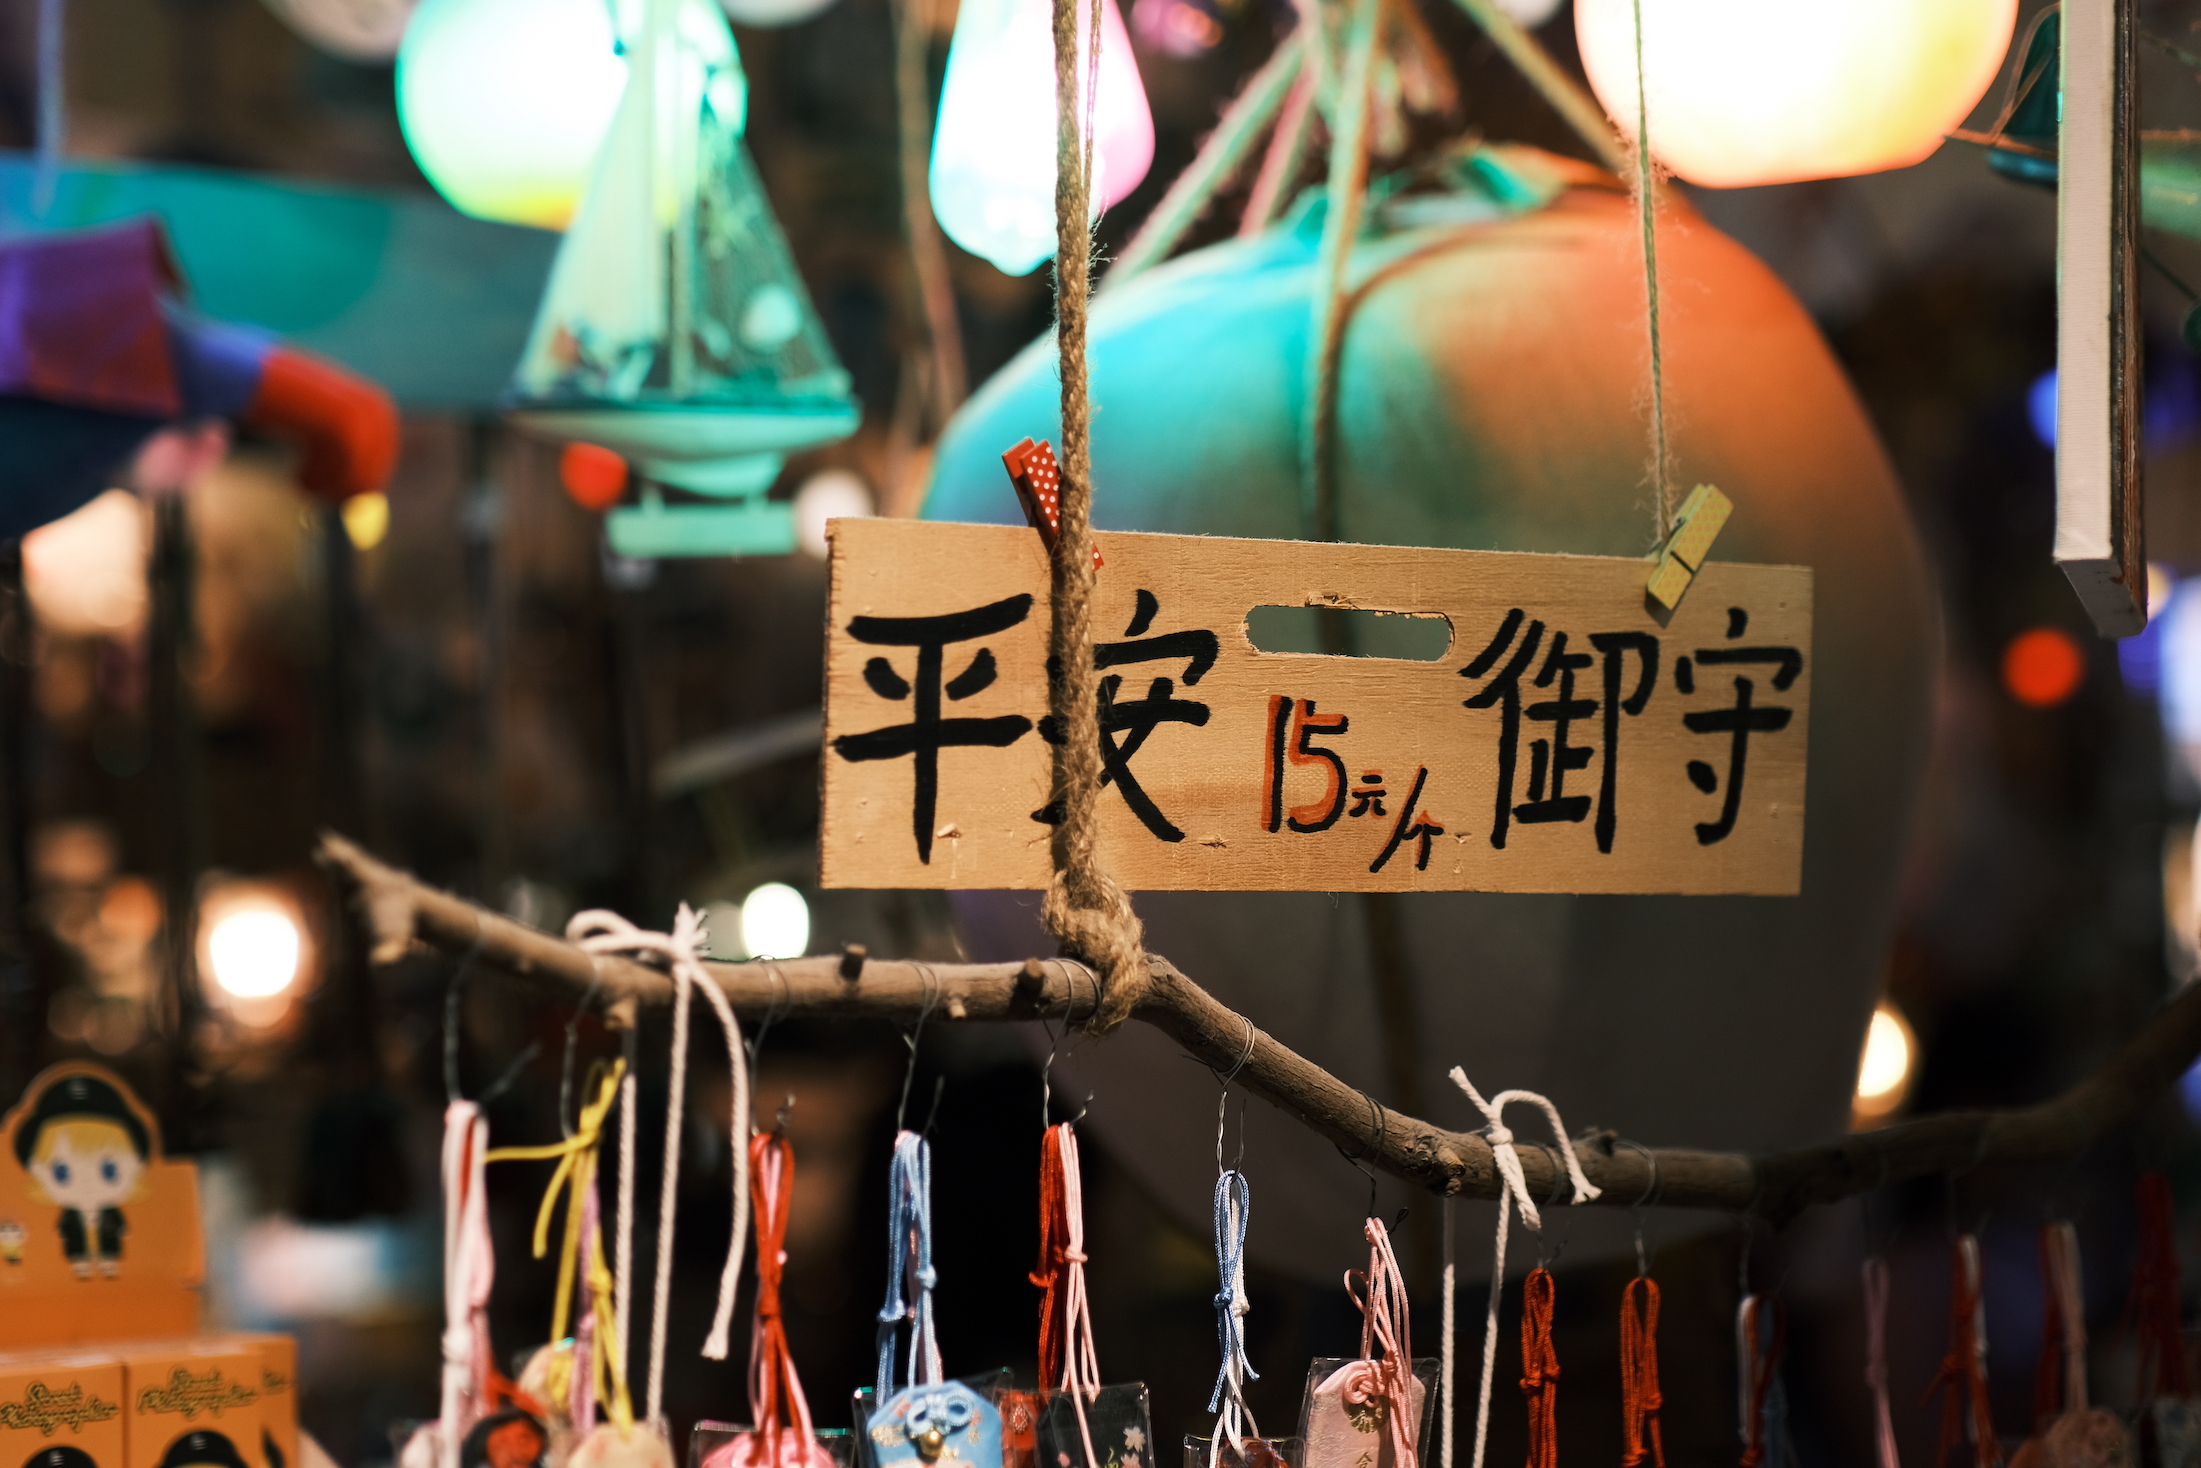 平安 15元/个 御守